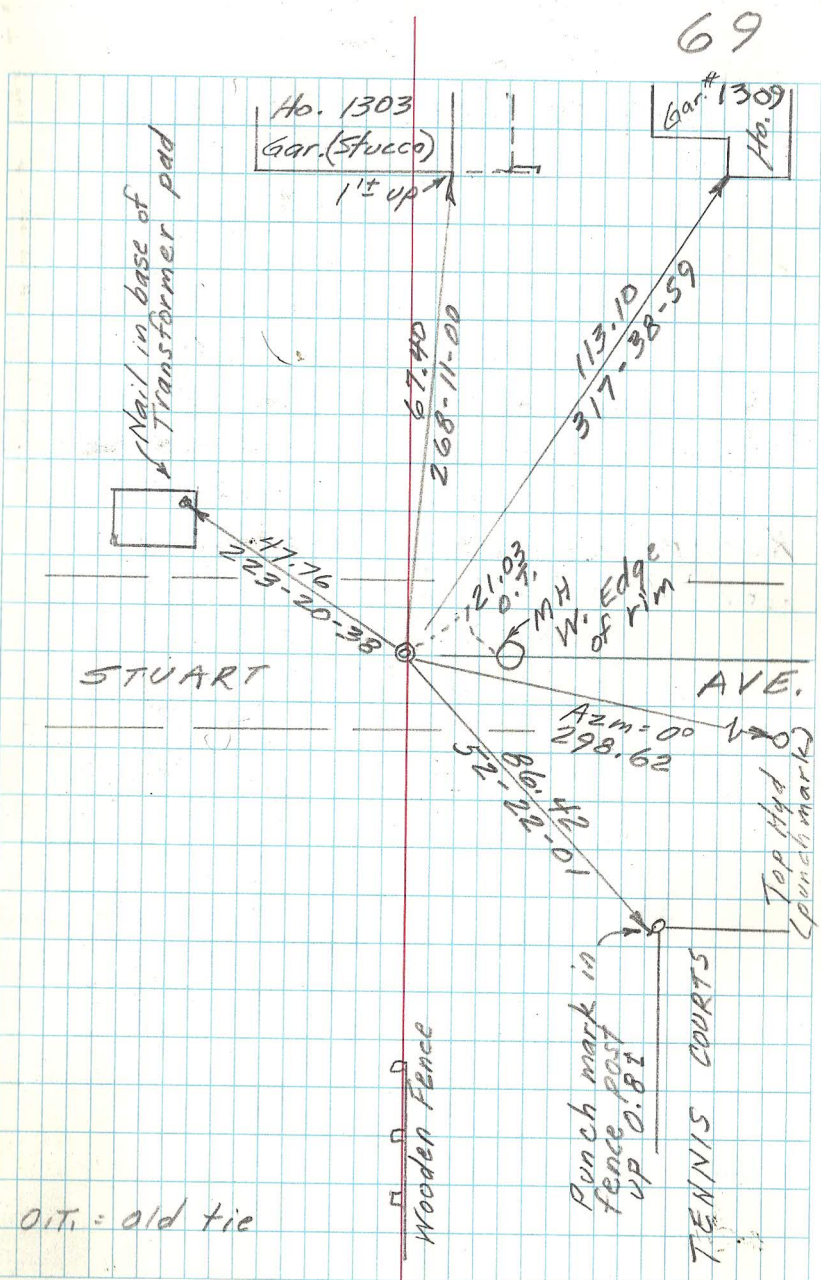 69
Ho. 1303
Gar. (Stucco)
1'± up
Gar. # 1309
Ho.
Nail in base of
Transformer pad
67.40
268-11-00
113.10
317-38-59
47.76
223-20-38
21.03
O.T.
MH
W. Edge
of rim
STUART AVE.
Azm = 0°
298.62
Top Hyd
(punch mark)
Punch mark in
fence post
up 0.8±
TENNIS COURTS
Wooden Fence
O.T. = old tie